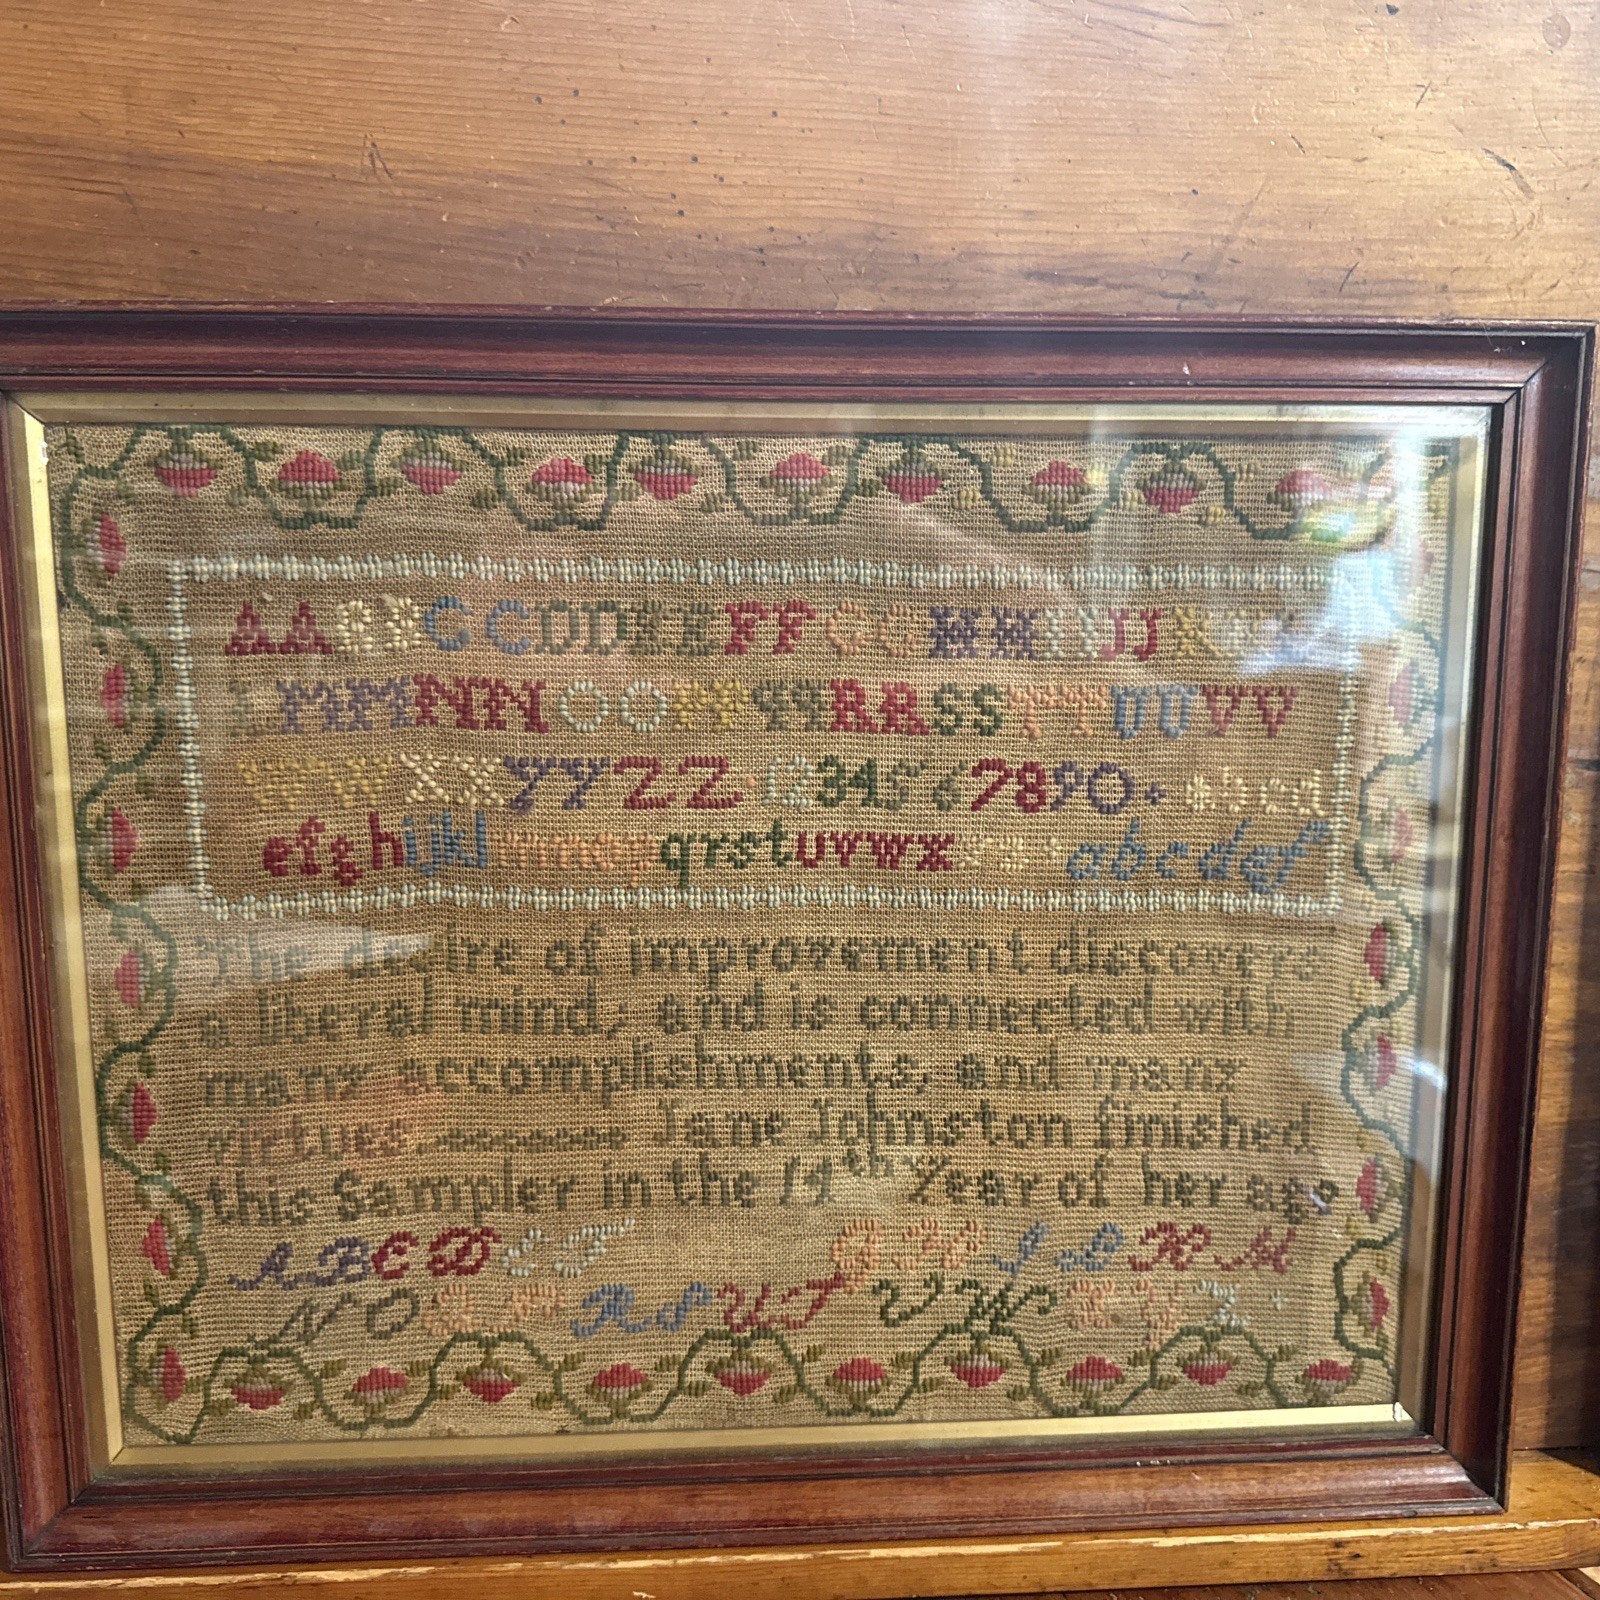 AABBCCDDEEFFGGHHIIJJKK
L MMNNOOPPQQRRSSTTUUVV
WWXXYYZZ 1234567890+ abcd
efghijkl mnop qrstuvwx yz + abcdef
The desire of improvement discovers
a liberal mind; and is connected with
many accomplishments, and many
virtues. Jane Johnston finished
this Sampler in the 14th Year of her age
A B C D E F G H I J K M
N O Q P R S U T V W X Y Z